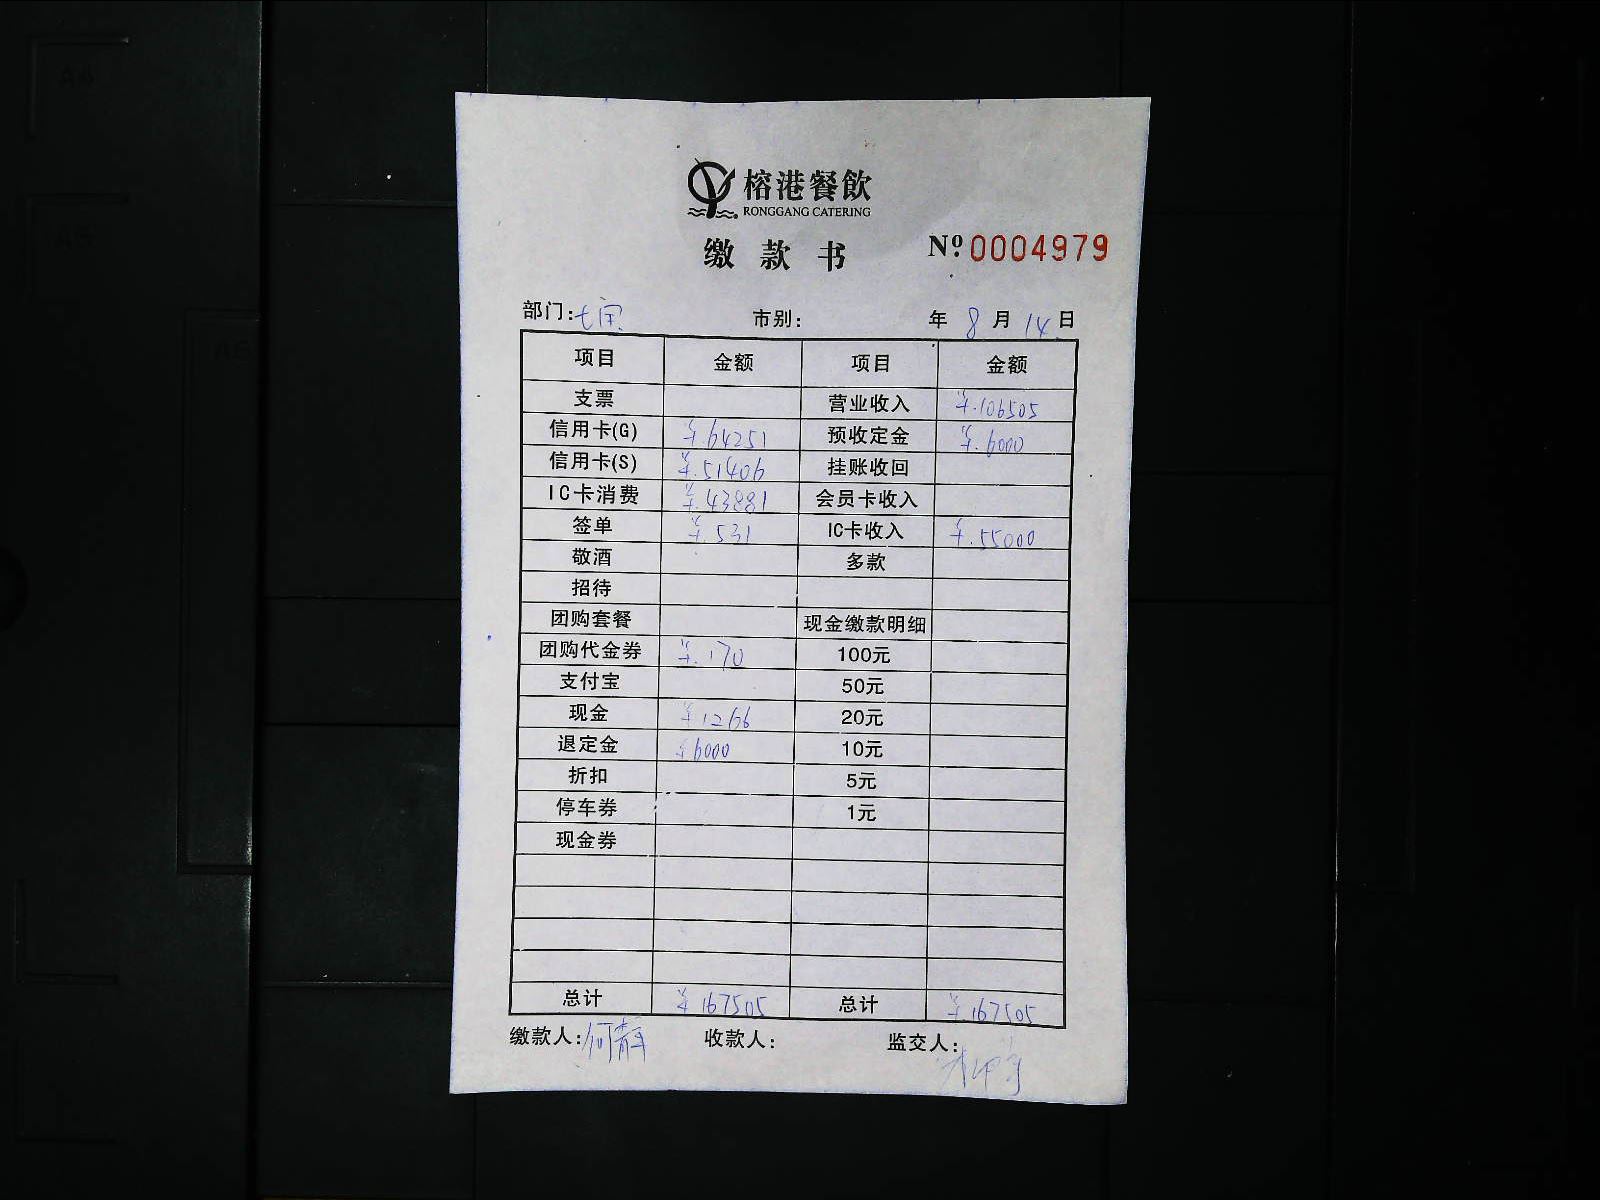 榕港餐飲
RONGGANG CATERING
缴款书 №0004979
部门:七宝 市别: 年 8 月 14 日
项目 金额 项目 金额
支票 营业收入 ¥.106505
信用卡(G) ¥.64251 预收定金 ¥.6000
信用卡(S) ¥.51406 挂账收回
IC卡消费 ¥.43881 会员卡收入
签单 ¥.531 IC卡收入 ¥.55000
敬酒 多款
招待
团购套餐 现金缴款明细
团购代金券 ¥.170 100元
支付宝 50元
现金 ¥1266 20元
退定金 ¥6000 10元
折扣 5元
停车券 1元
现金券
总计 ¥167505 总计 ¥.167505
缴款人:何静 收款人: 监交人: